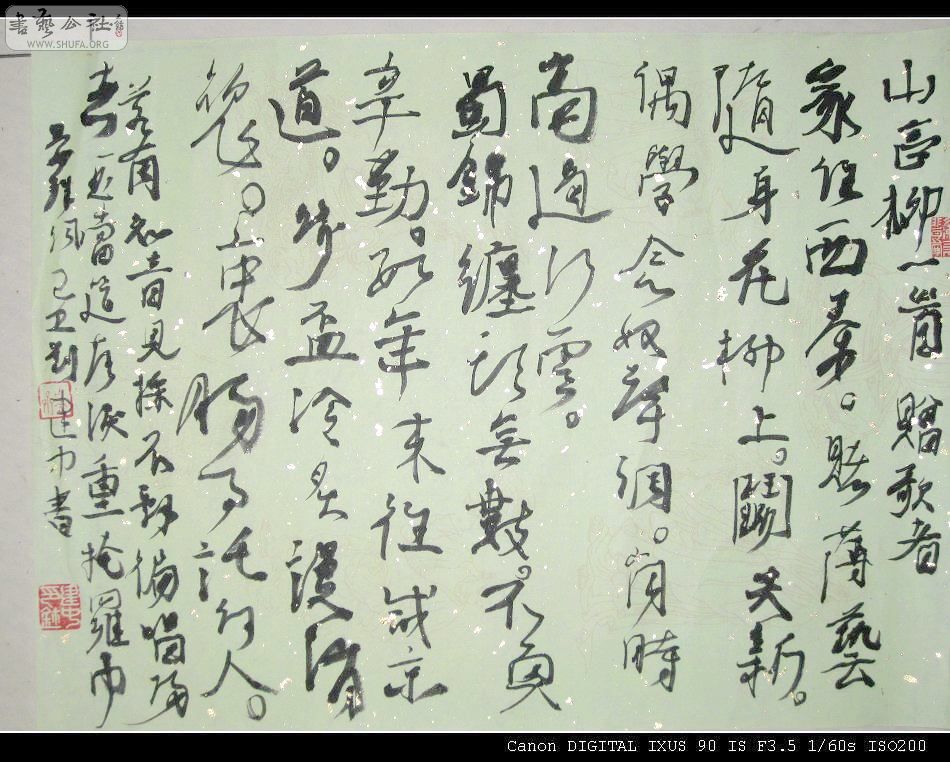 書藝公社
WWW.SHUFA.ORG
山亭柳一首 贈歌者
家住西秦。賭薄藝
隨身花柳上。鬭尖新。
偶學念奴聲調。有時
高遏行雲。
蜀錦纏頭無數。不負
辛勤。數年来往咸京
道。殘盃冷炙謾消
魂。衷腸事託何人。
若有知音見採不辭徧唱陽
春一曲當筵落淚重掩羅巾
己丑劉建中書
Canon DIGITAL IXUS 90 IS F3.5 1/60s ISO200